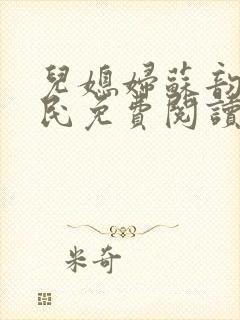 兒媳婦蘇韵
民免費閱讀
米奇